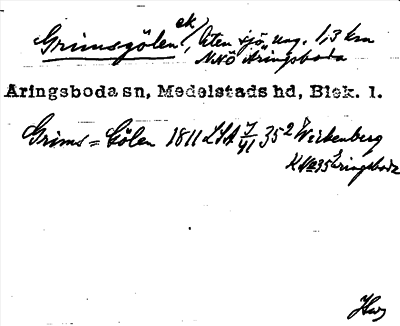 Grimsgölen ek, liten sjö, ung. 1,3 km
NNÖ Aringsboda
Aringsboda sn, Medelstads hd, Blek. l.
Grims=Gölen 1811 LSA 35² Wirkenberg
Aringsboda